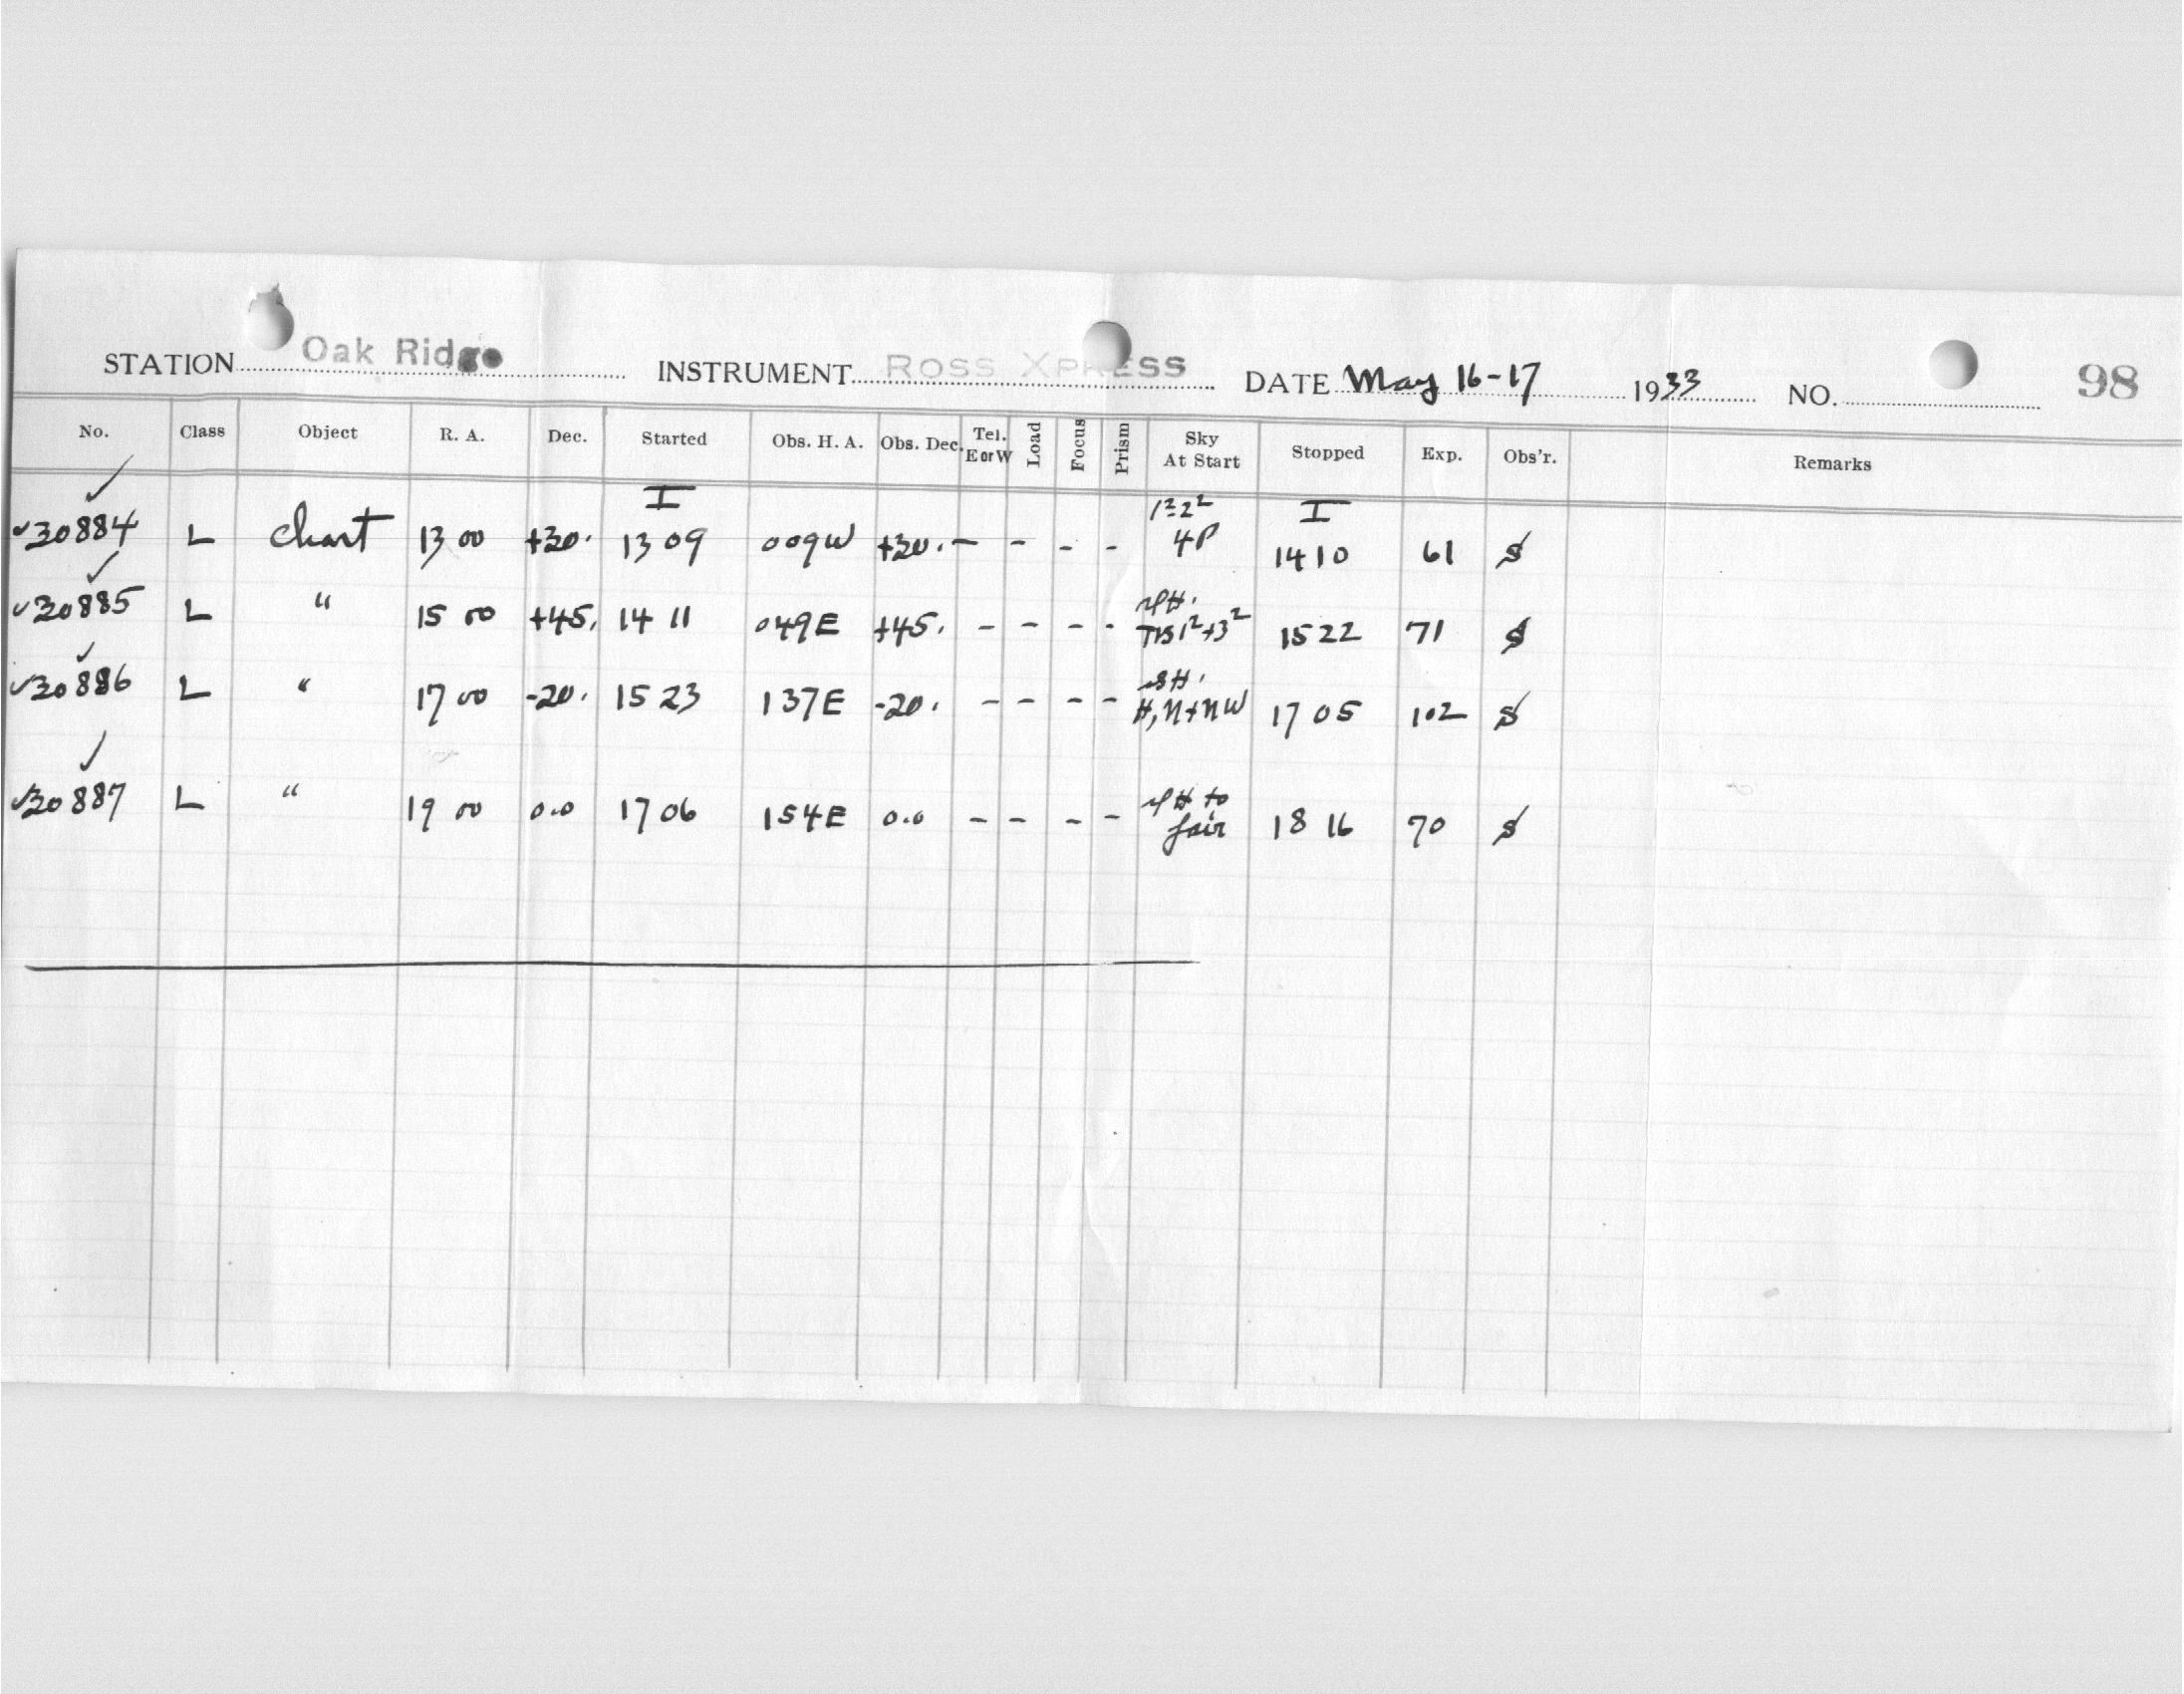 STATION Oak Ridge INSTRUMENT Ross Xpress DATE May 16-17 1933 NO. 98
No. Class Object R. A. Dec. Started Obs. H. A. Obs. Dec. Tel. E or W Load Focus Prism Sky At Start Stopped Exp. Obs'r. Remarks
I I
30884 L chart 13 00 +30. 13 09 0 09W +30. - - - - 4P 14 10 61 S
30885 L " 15 00 +45. 14 11 0 49E +45. - - - - 15 22 71 S
30886 L " 17 00 -20. 15 23 1 37E -20. - - - - H, N+NW 17 05 102 S
30887 L " 19 00 0.0 17 06 1 54E 0.0 - - - - H to fair 18 16 70 S